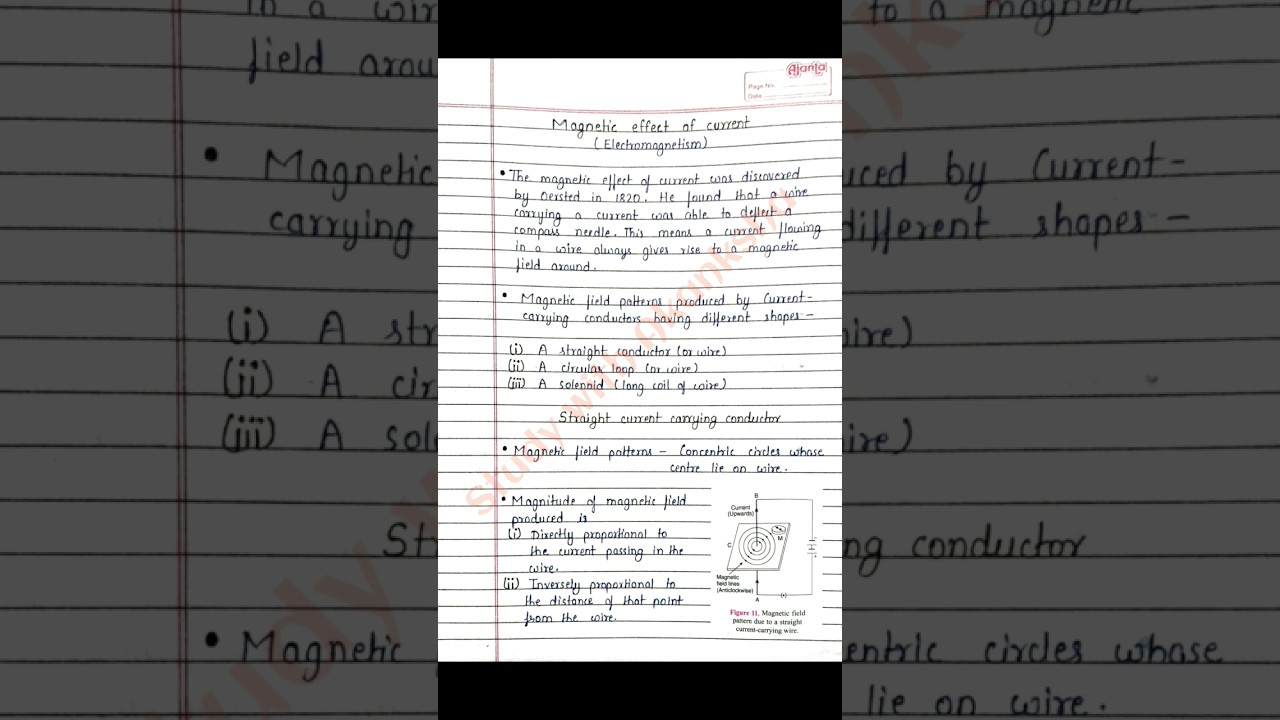 Ajanta
Page No.
Date
Magnetic effect of current
(Electromagnetism)
• The magnetic effect of current was discovered
by Oersted in 1820. He found that a wire
carrying a current was able to deflect a
compass needle. This means a current flowing
in a wire always gives rise to a magnetic
field around.
• Magnetic field patterns produced by Current-
carrying conductors having different shapes -
(i) A straight conductor (or wire)
(ii) A circular loop (or wire)
(iii) A solenoid (long coil of wire)
Straight current carrying conductor
• Magnetic field patterns - Concentric circles whase
centre lie on wire.
• Magnitude of magnetic field
produced is
(i) Directly proportional to
the current passing in the
wire.
(ii) Inversely proportional to
the distance of that point
from the wire.
B
Current
(Upwards)
M
C
Magnetic
field lines
(Anticlockwise)
A
Figure 11. Magnetic field
pattern due to a straight
current-carrying wire.
Study with Akanksha
in a wir
to a magnetic
field arou
• Magnetic
uced by Current-
carrying
different shapes -
(i) A str
wire)
(ii) A cir
(iii) A sol
ire)
St
ng conductor
• Magnetic
entric circles whase
lie on wire.